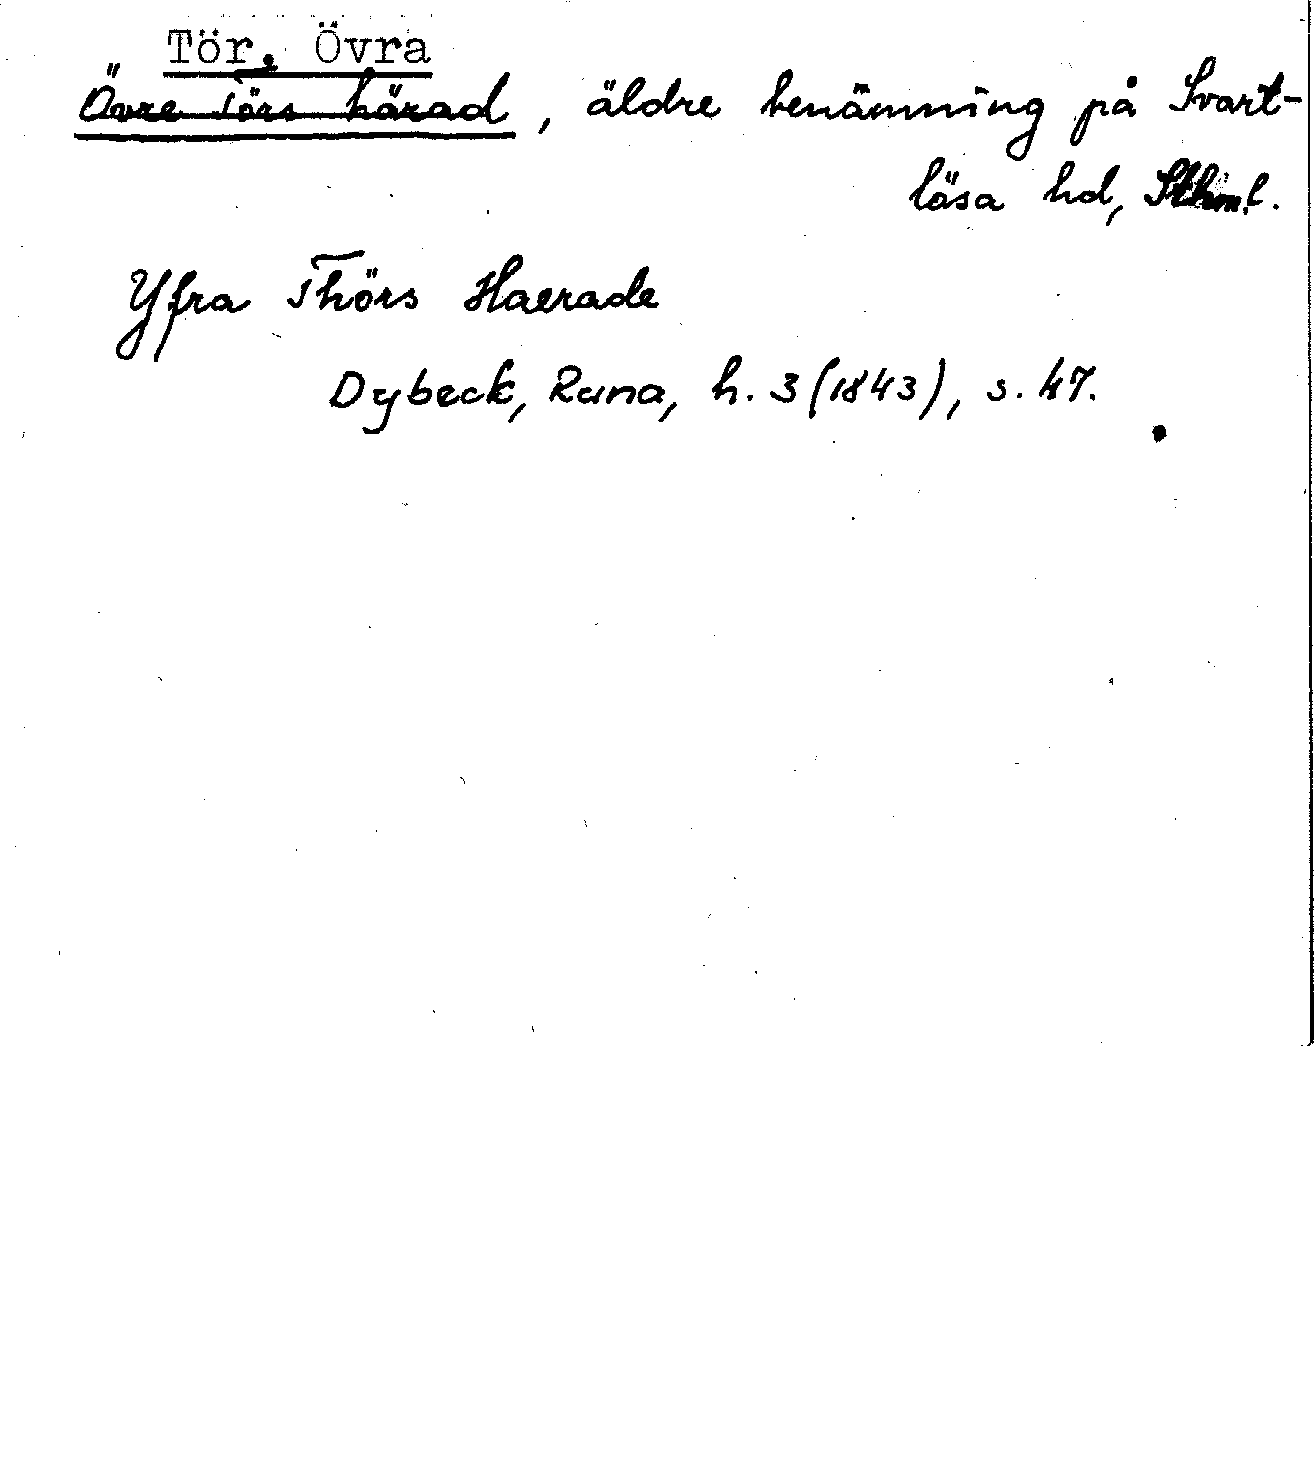 Tör, Övra
Övre Törs härad, äldre benämning på Svart-
lösa hd, Sthm.l.
Yfra Thörs Haerade
Dybeck, Runa, h. 3 (1843), s. 47.